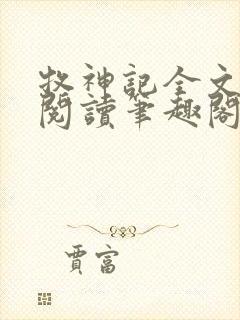 牧神記全文
閱讀筆趣閣
賈富